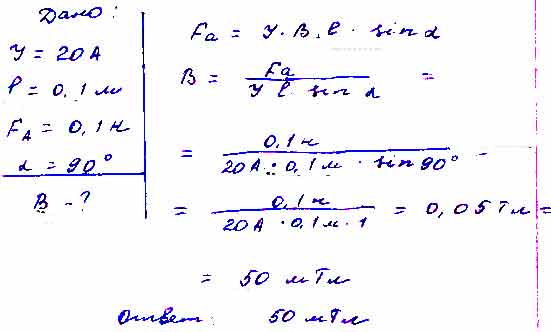 Дано:
I = 20 А
l = 0,1 м
Fᴀ = 0,1 н
α = 90°
B - ?
Fa = I · B · l · sin α
B = Fa / I l sin α =
= 0,1 н / 20 А · 0,1 м · sin 90° =
= 0,1 н / 20 А · 0,1 м · 1 = 0,05 Тл =
= 50 мТл
Ответ: 50 мТл